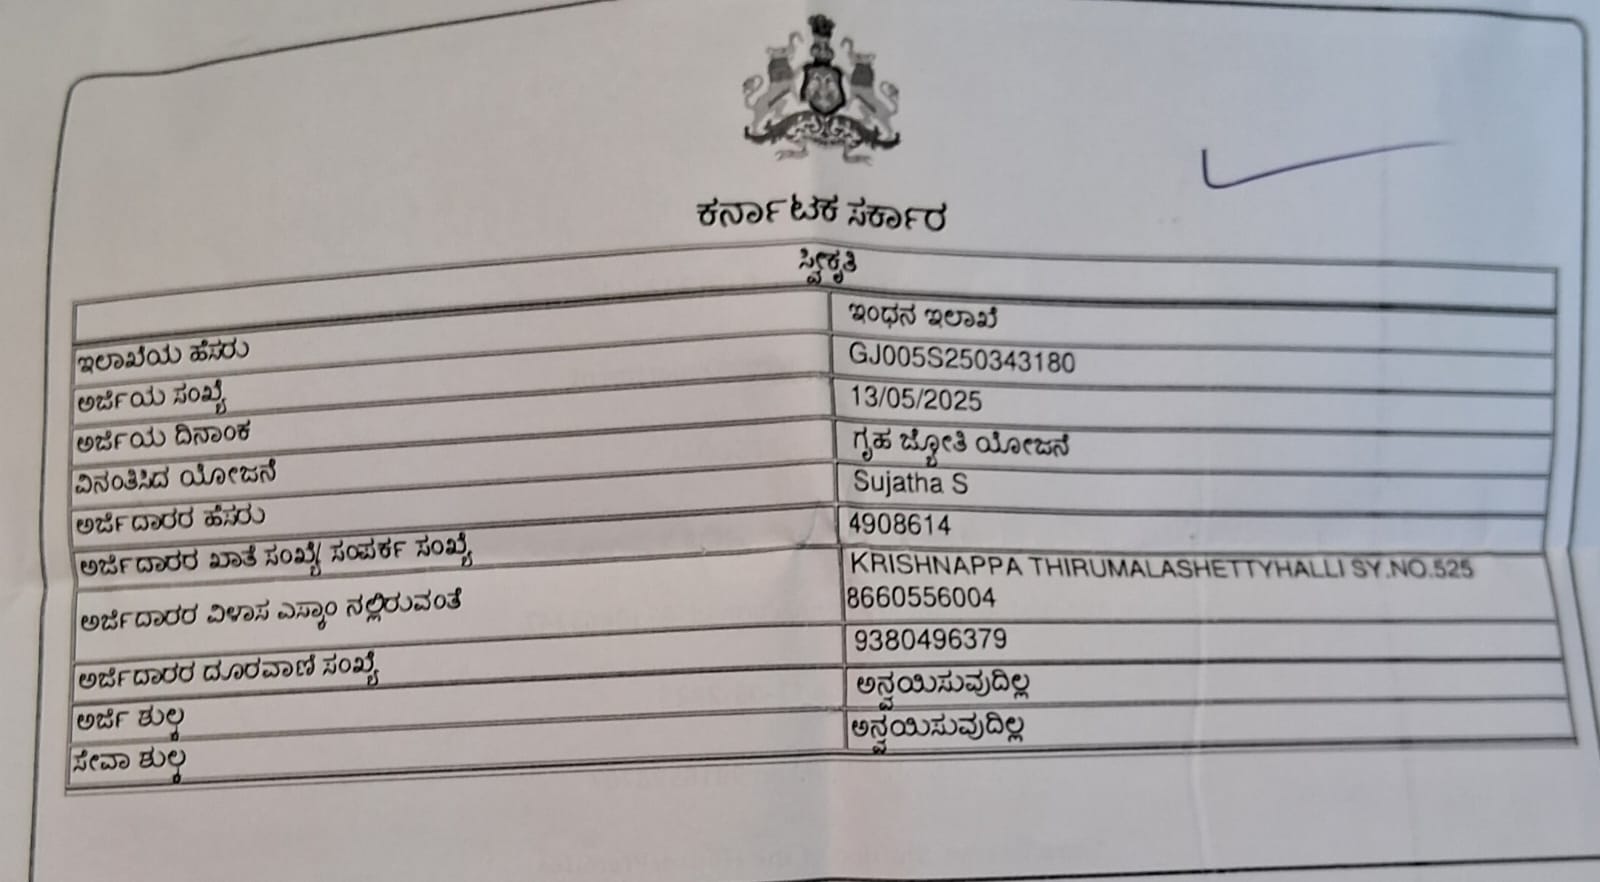 ಕರ್ನಾಟಕ ಸರ್ಕಾರ
ಸ್ವೀಕೃತಿ
ಇಲಾಖೆಯ ಹೆಸರು ಇಂಧನ ಇಲಾಖೆ
ಅರ್ಜಿಯ ಸಂಖ್ಯೆ GJ005S250343180
ಅರ್ಜಿಯ ದಿನಾಂಕ 13/05/2025
ವಿನಂತಿಸಿದ ಯೋಜನೆ ಗೃಹ ಜ್ಯೋತಿ ಯೋಜನೆ
ಅರ್ಜಿದಾರರ ಹೆಸರು Sujatha S
ಅರ್ಜಿದಾರರ ಖಾತೆ ಸಂಖ್ಯೆ/ ಸಂಪರ್ಕ ಸಂಖ್ಯೆ 4908614
ಅರ್ಜಿದಾರರ ವಿಳಾಸ ಎಸ್ಕಾಂ ನಲ್ಲಿರುವಂತೆ KRISHNAPPA THIRUMALASHETTYHALLI SY.NO.525
8660556004
ಅರ್ಜಿದಾರರ ದೂರವಾಣಿ ಸಂಖ್ಯೆ 9380496379
ಅರ್ಜಿ ಶುಲ್ಕ ಅನ್ವಯಿಸುವುದಿಲ್ಲ
ಸೇವಾ ಶುಲ್ಕ ಅನ್ವಯಿಸುವುದಿಲ್ಲ